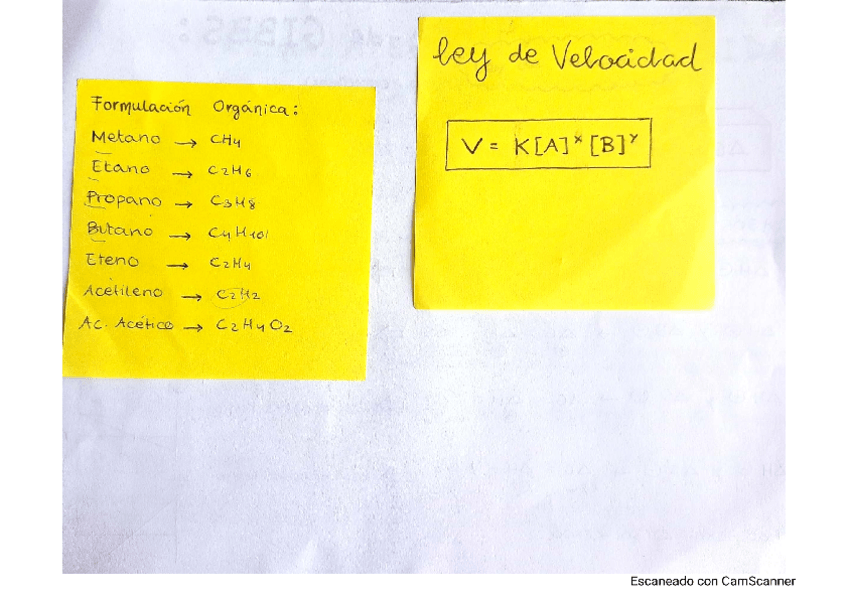 Formulación Orgánica:
Metano → CH4
Etano → C2H6
Propano → C3H8
Butano → C4H10
Eteno → C2H4
Acetileno → C2H2
Ac. Acético → C2H4O2
Ley de Velocidad
V = K[A]ˣ [B]ʸ
GIBBS:
Escaneado con CamScanner